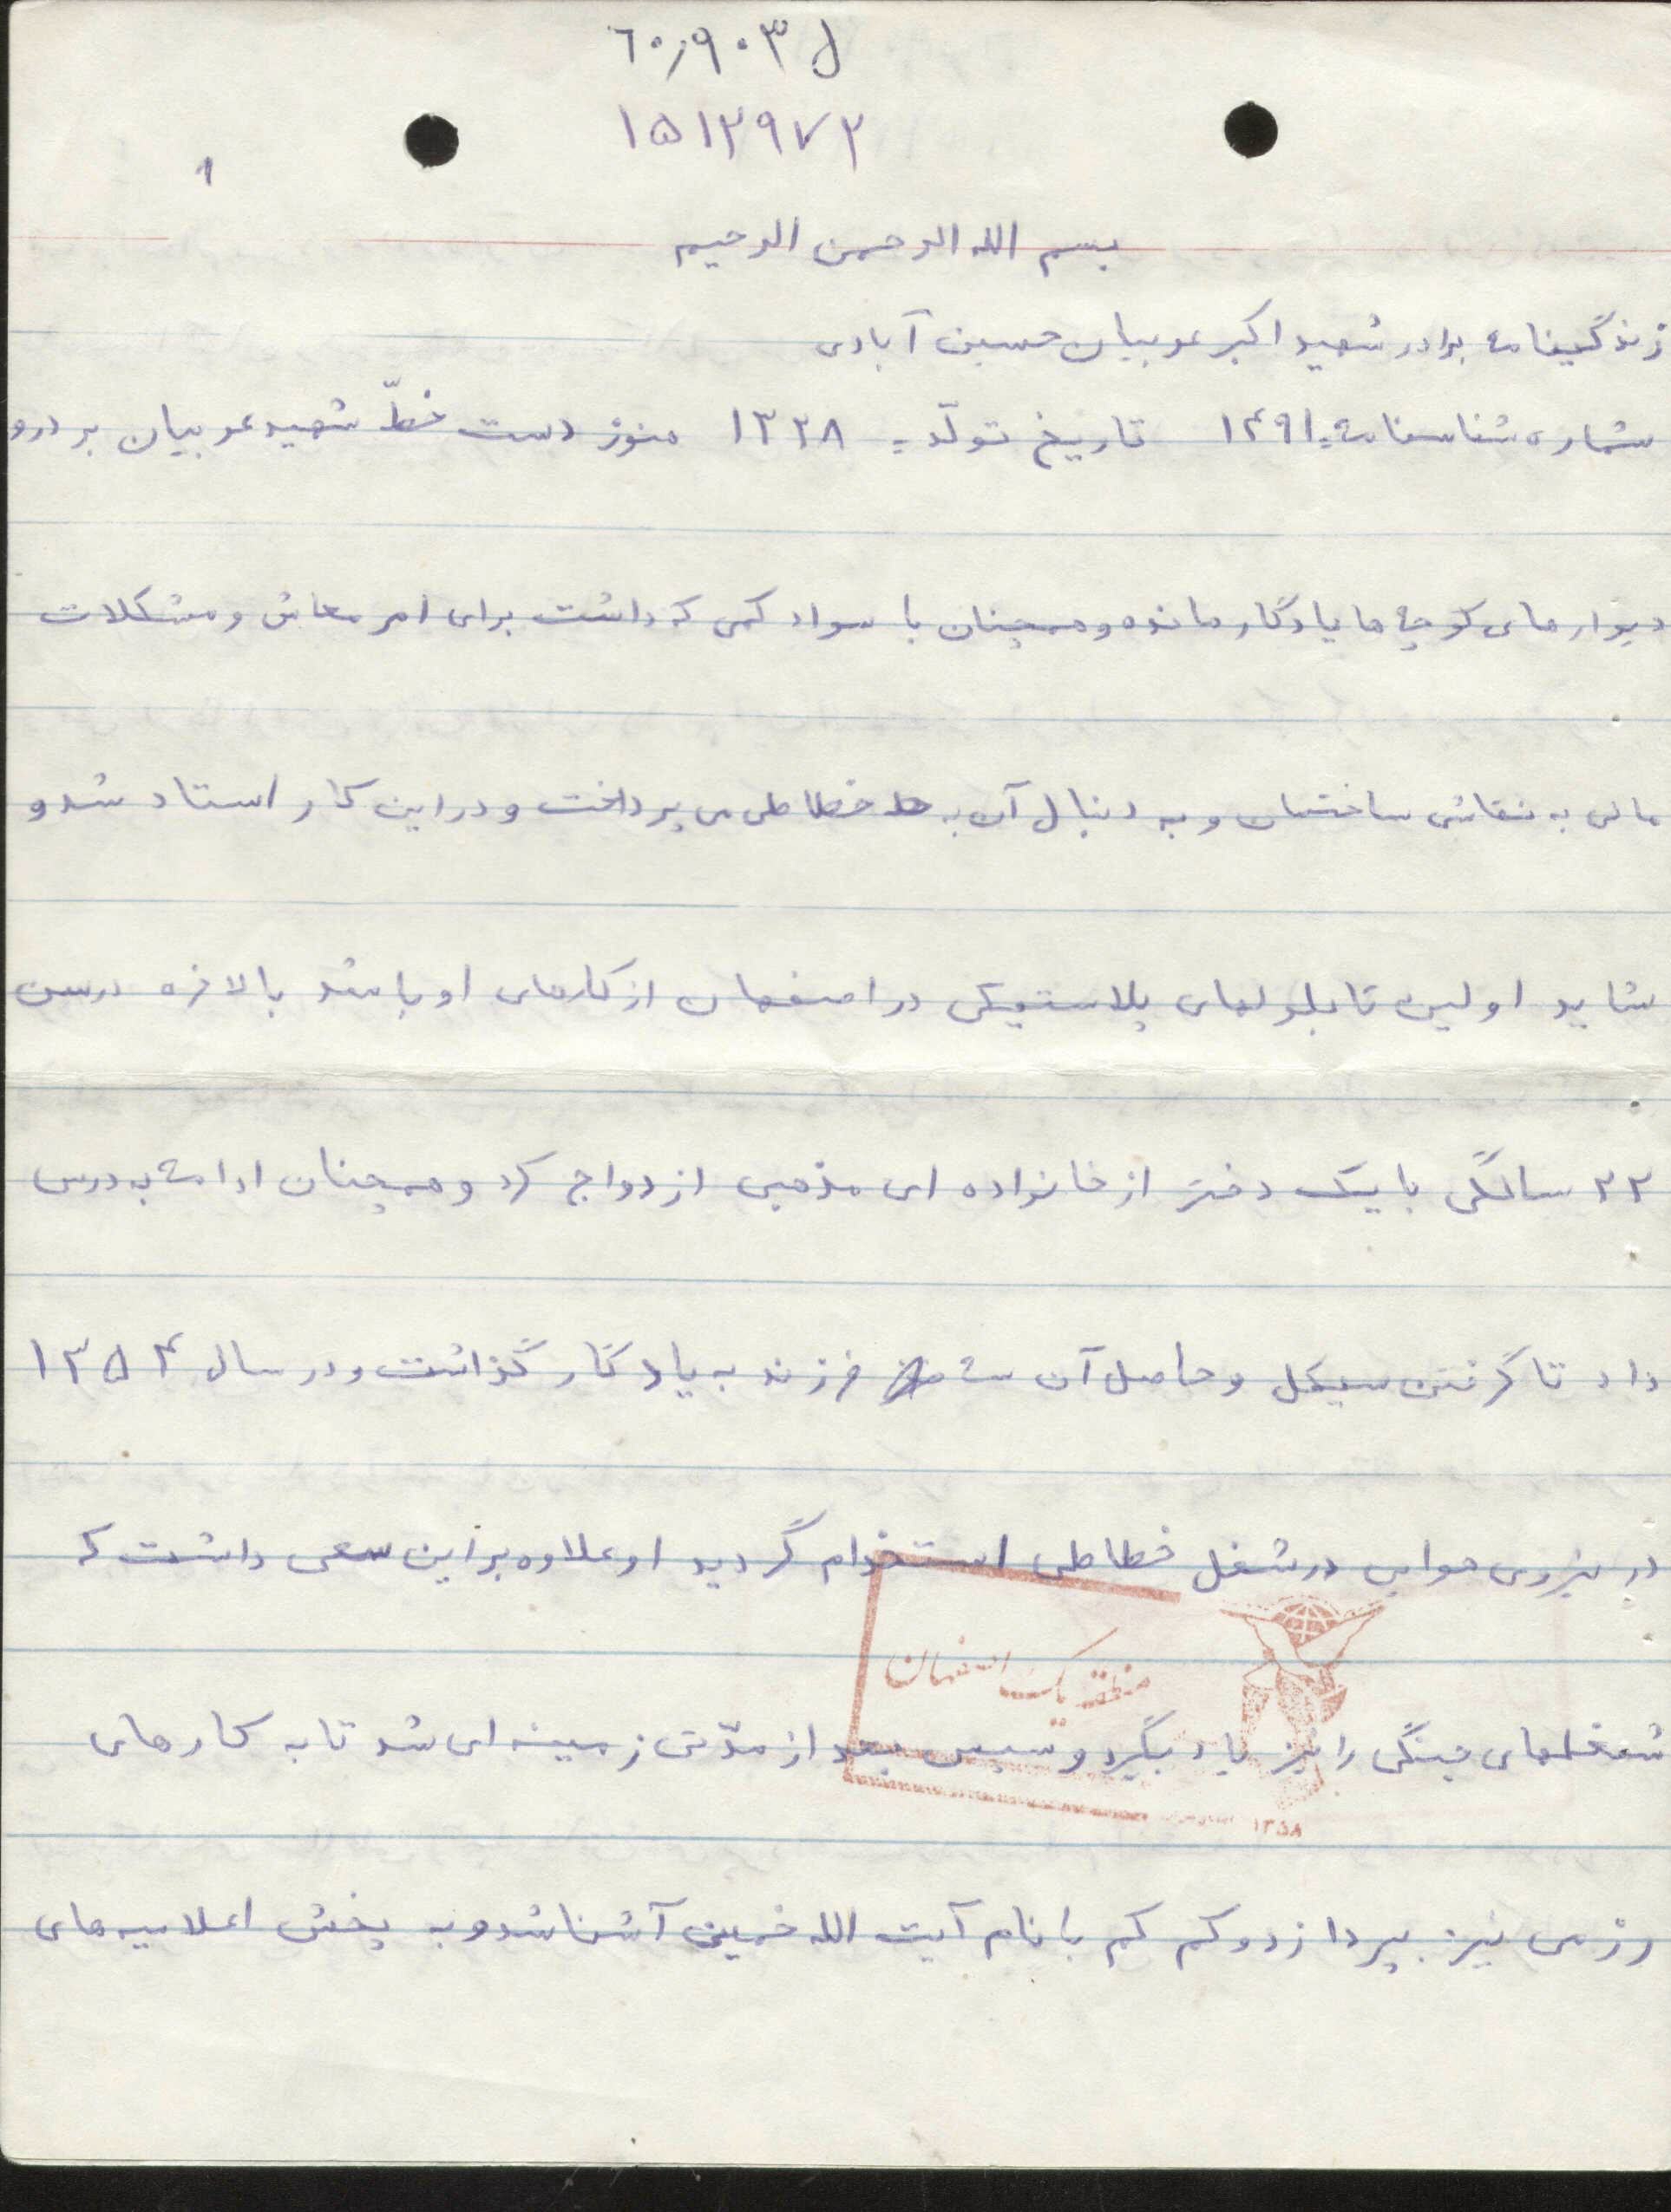 ۶۰٫۹۰۳ ل
۱۵۱۲۹۷۲
۱
بسم الله الرحمن الرحیم
زندگینامه برادر شهید اکبر عربیان حسین آبادی
شماره شناسنامه: ۱۲۹۱ تاریخ تولّد: ۱۳۲۸ هنوز دست خطّ شهید عربیان بر در و
دیوارهای کوچه ها یادگار مانده و همچنان با سواد کمی که داشت برای امر معاش و مشکلات
مالی به نقاشی ساختمان و به دنبال آن به خطاطی می پرداخت و در این کار استاد شد و
شاید اولین تابلوهای پلاستیکی در اصفهان از کارهای او باشد بالاخره درسن
۲۲ سالگی با یک دختر از خانواده ای مذهبی ازدواج کرد و همچنان ادامه به درس
داد تا گرفتن سیکل و حاصل آن سه فرزند به یادگار گذاشت و در سال ۱۳۵۴
در نیروی هوایی در شغل خطاطی استخدام گردید او علاوه بر این سعی داشت که
منطقه یک اصفهان
شغلهای جنگی را نیز یاد بگیرد و سپس بعد از مدّتی زمینه ای شد تا به کارهای
۱۳۵۸
رزمی نیز بپردازد و کم کم با نام آیت الله خمینی آشنا شد و به پخش اعلامیه های